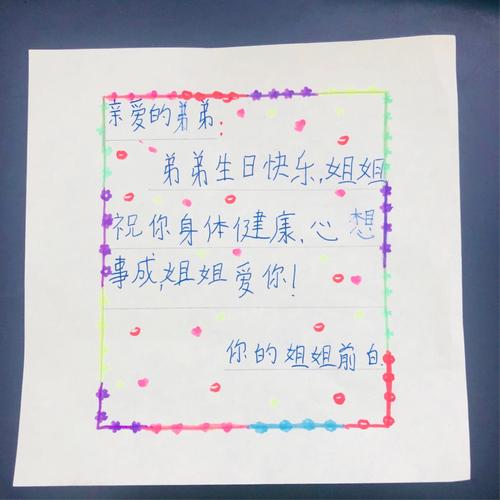 亲爱的弟弟:
弟弟生日快乐,姐姐
祝你身体健康,心想
事成,姐姐爱你!
你的姐姐前白